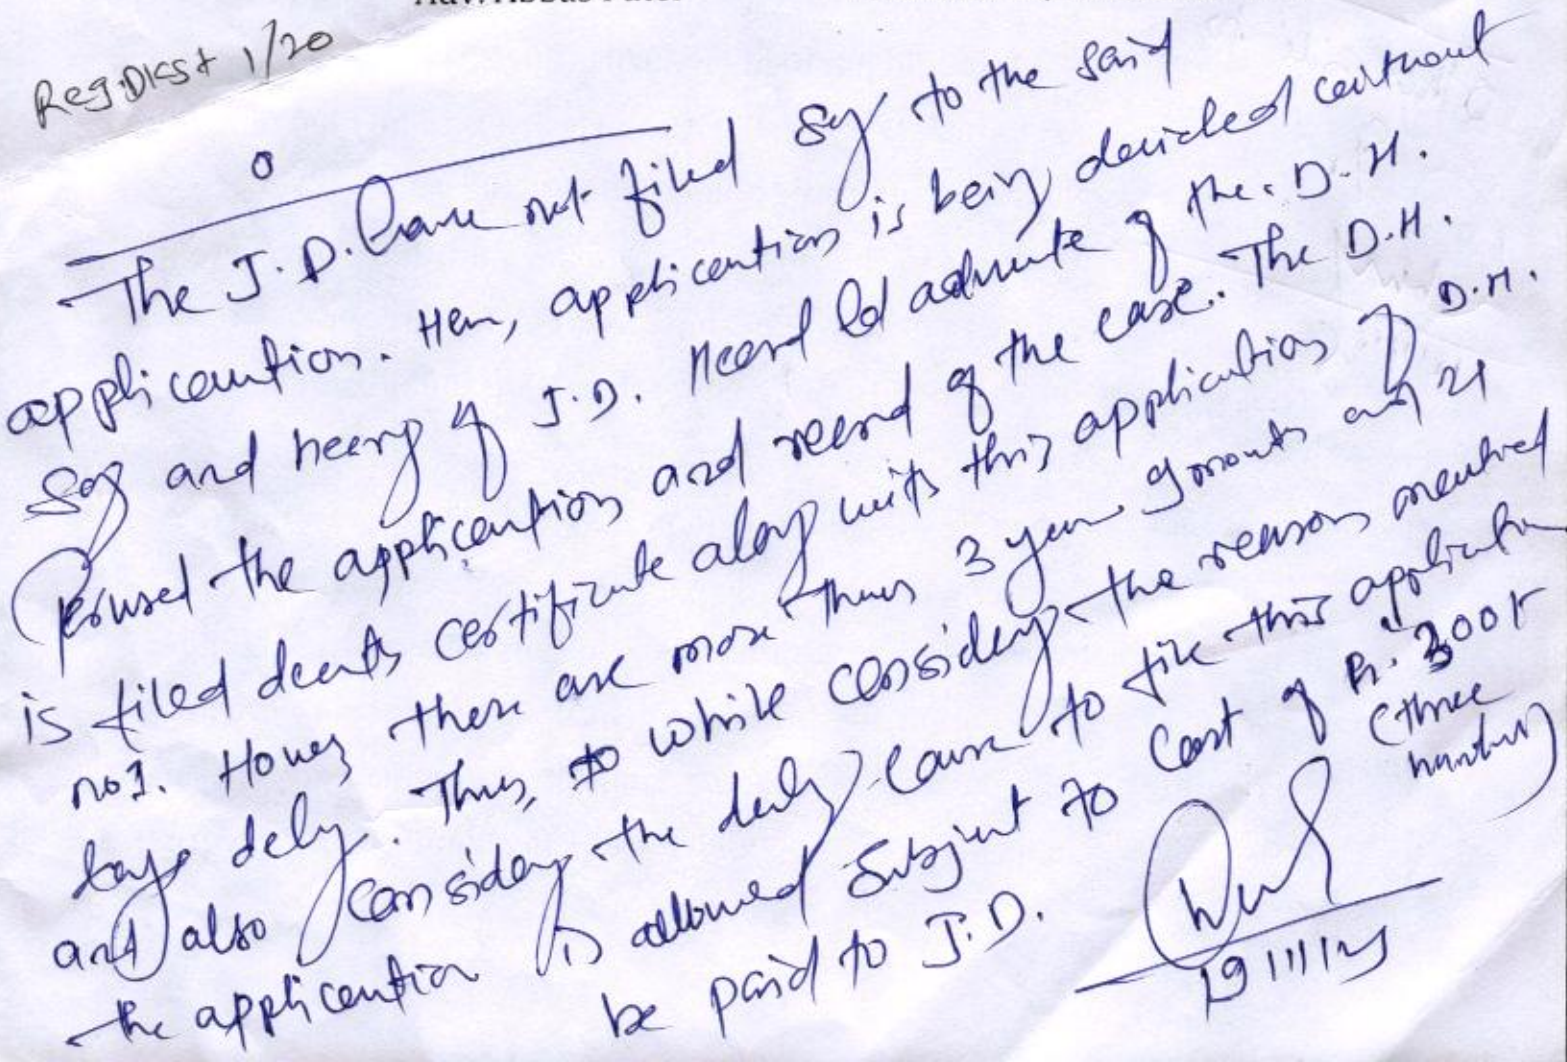 Reg.Dkst 1/20
O
The J.D. have not filed Say to the said
application. Hen, application is being decided without
Say and heeng of J.D. Heard ld advocate of the D.H.
Perused the application and record of the case. The D.H.
is filed death certificate along with this application of D.H.
no1. Howey there are more than 3 year 9 month and 21
days dely. Thus, while considey the reasons mentined
and also considey the dely cause to file this application
the application is allowed Subject to Cost of Rs. 300/-
(three hundred)
be paid to J.D.
19/11/25